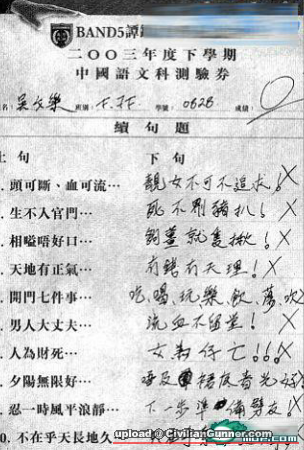 BAND5譚
二〇〇三年度下學期
中國語文科測驗券
名: 吳文樂 班別: F.7F. 學號: 0626 成績: 0
續句題
上句 下句
. 頭可斷、血可流… 靚女不可不追求!
. 生不入官門… 死不劏豬扒!
. 相嗌唔好口… 劏薑就隻揪!
. 天地有正氣… 有錯有天理!
. 開門七件事… 吃、喝、玩、樂、飲、蕩、吹!
. 男人大丈夫… 流血不留堂!
. 人為財死… 女為仔亡!!!
. 夕陽無限好…
. 忍一時風平浪靜… 下一步準備劈友!
0. 不在乎天長地久…
upload @ CivilianGunner.com